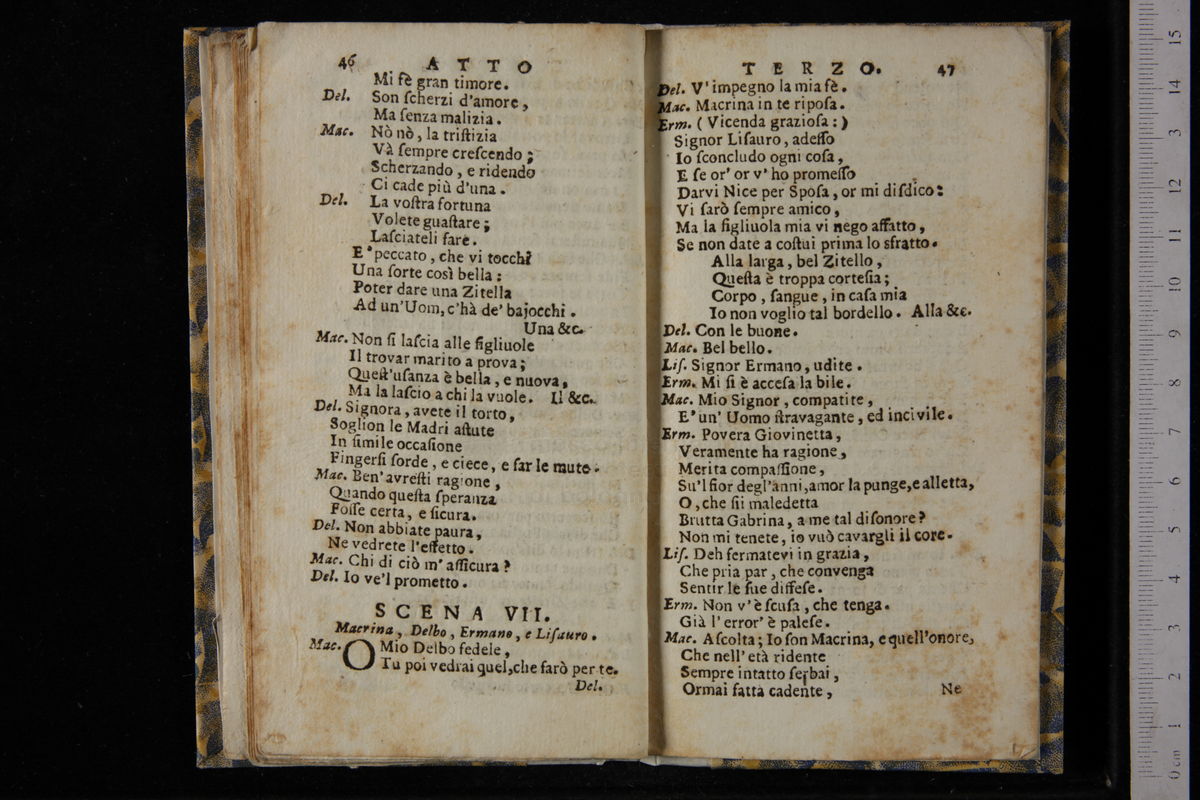 46 ATTO
Mi fè gran timore.
Del. Son ſcherzi d'amore,
Ma ſenza malizia.
Mac. Nò nò, la triſtizia
Và ſempre creſcendo;
Scherzando, e ridendo
Ci cade più d'una.
Del. La voſtra fortuna
Volete guaſtare;
Laſciateli fare.
E' peccato, che vi tocchi
Una ſorte così bella:
Poter dare una Zitella
Ad un'Uom, c'hà de' bajocchi.
Una &c.
Mac. Non ſi laſcia alle figliuole
Il trovar marito a prova;
Queſt'uſanza è bella, e nuova,
Ma la laſcio a chi la vuole. Il &c.
Del. Signora, avete il torto,
Soglion le Madri aſtute
In ſimile occaſione
Fingerſi ſorde, e ciece, e far le mute.
Mac. Ben'avreſti ragione,
Quando queſta ſperanza
Foſſe certa, e ſicura.
Del. Non abbiate paura,
Ne vedrete l'effetto.
Mac. Chi di ciò m'aſſicura?
Del. Io ve'l prometto.
SCENA VII.
Macrina, Delbo, Ermano, e Liſauro.
Mac. O Mio Delbo fedele,
Tu poi vedrai quel, che farò per te.
Del.
TERZO. 47
Del. V'impegno la mia fè.
Mac. Macrina in te ripoſa.
Erm. (Vicenda grazioſa:)
Signor Liſauro, adeſſo
Io ſconcludo ogni coſa,
E ſe or' or v'ho promeſſo
Darvi Nice per Spoſa, or mi diſdico:
Vi ſarò ſempre amico,
Ma la figliuola mia vi nego affatto,
Se non date a coſtui prima lo sfratto.
Alla larga, bel Zitello,
Queſta è troppa corteſia;
Corpo, ſangue, in caſa mia
Io non voglio tal bordello. Alla &c.
Del. Con le buone.
Mac. Bel bello.
Liſ. Signor Ermano, udite.
Erm. Mi ſi è acceſa la bile.
Mac. Mio Signor, compatite,
E' un' Uomo ſtravagante, ed incivile.
Erm. Povera Giovinetta,
Veramente ha ragione,
Merita compaſſione,
Su'l fior degl'anni, amor la punge, e alletta,
O, che ſii maledetta
Brutta Gabrina, a me tal diſonore?
Non mi tenete, io vuò cavargli il core.
Liſ. Deh fermatevi in grazia,
Che pria par, che convenga
Sentir le ſue diffeſe.
Erm. Non v'è ſcuſa, che tenga.
Già l'error' è paleſe.
Mac. Aſcolta; Io ſon Macrina, e quell'onore,
Che nell'età ridente
Sempre intatto ſerbai,
Ormai fatta cadente,
Ne
0 cm 1 2 3 4 5 6 7 8 9 10 11 12 13 14 15